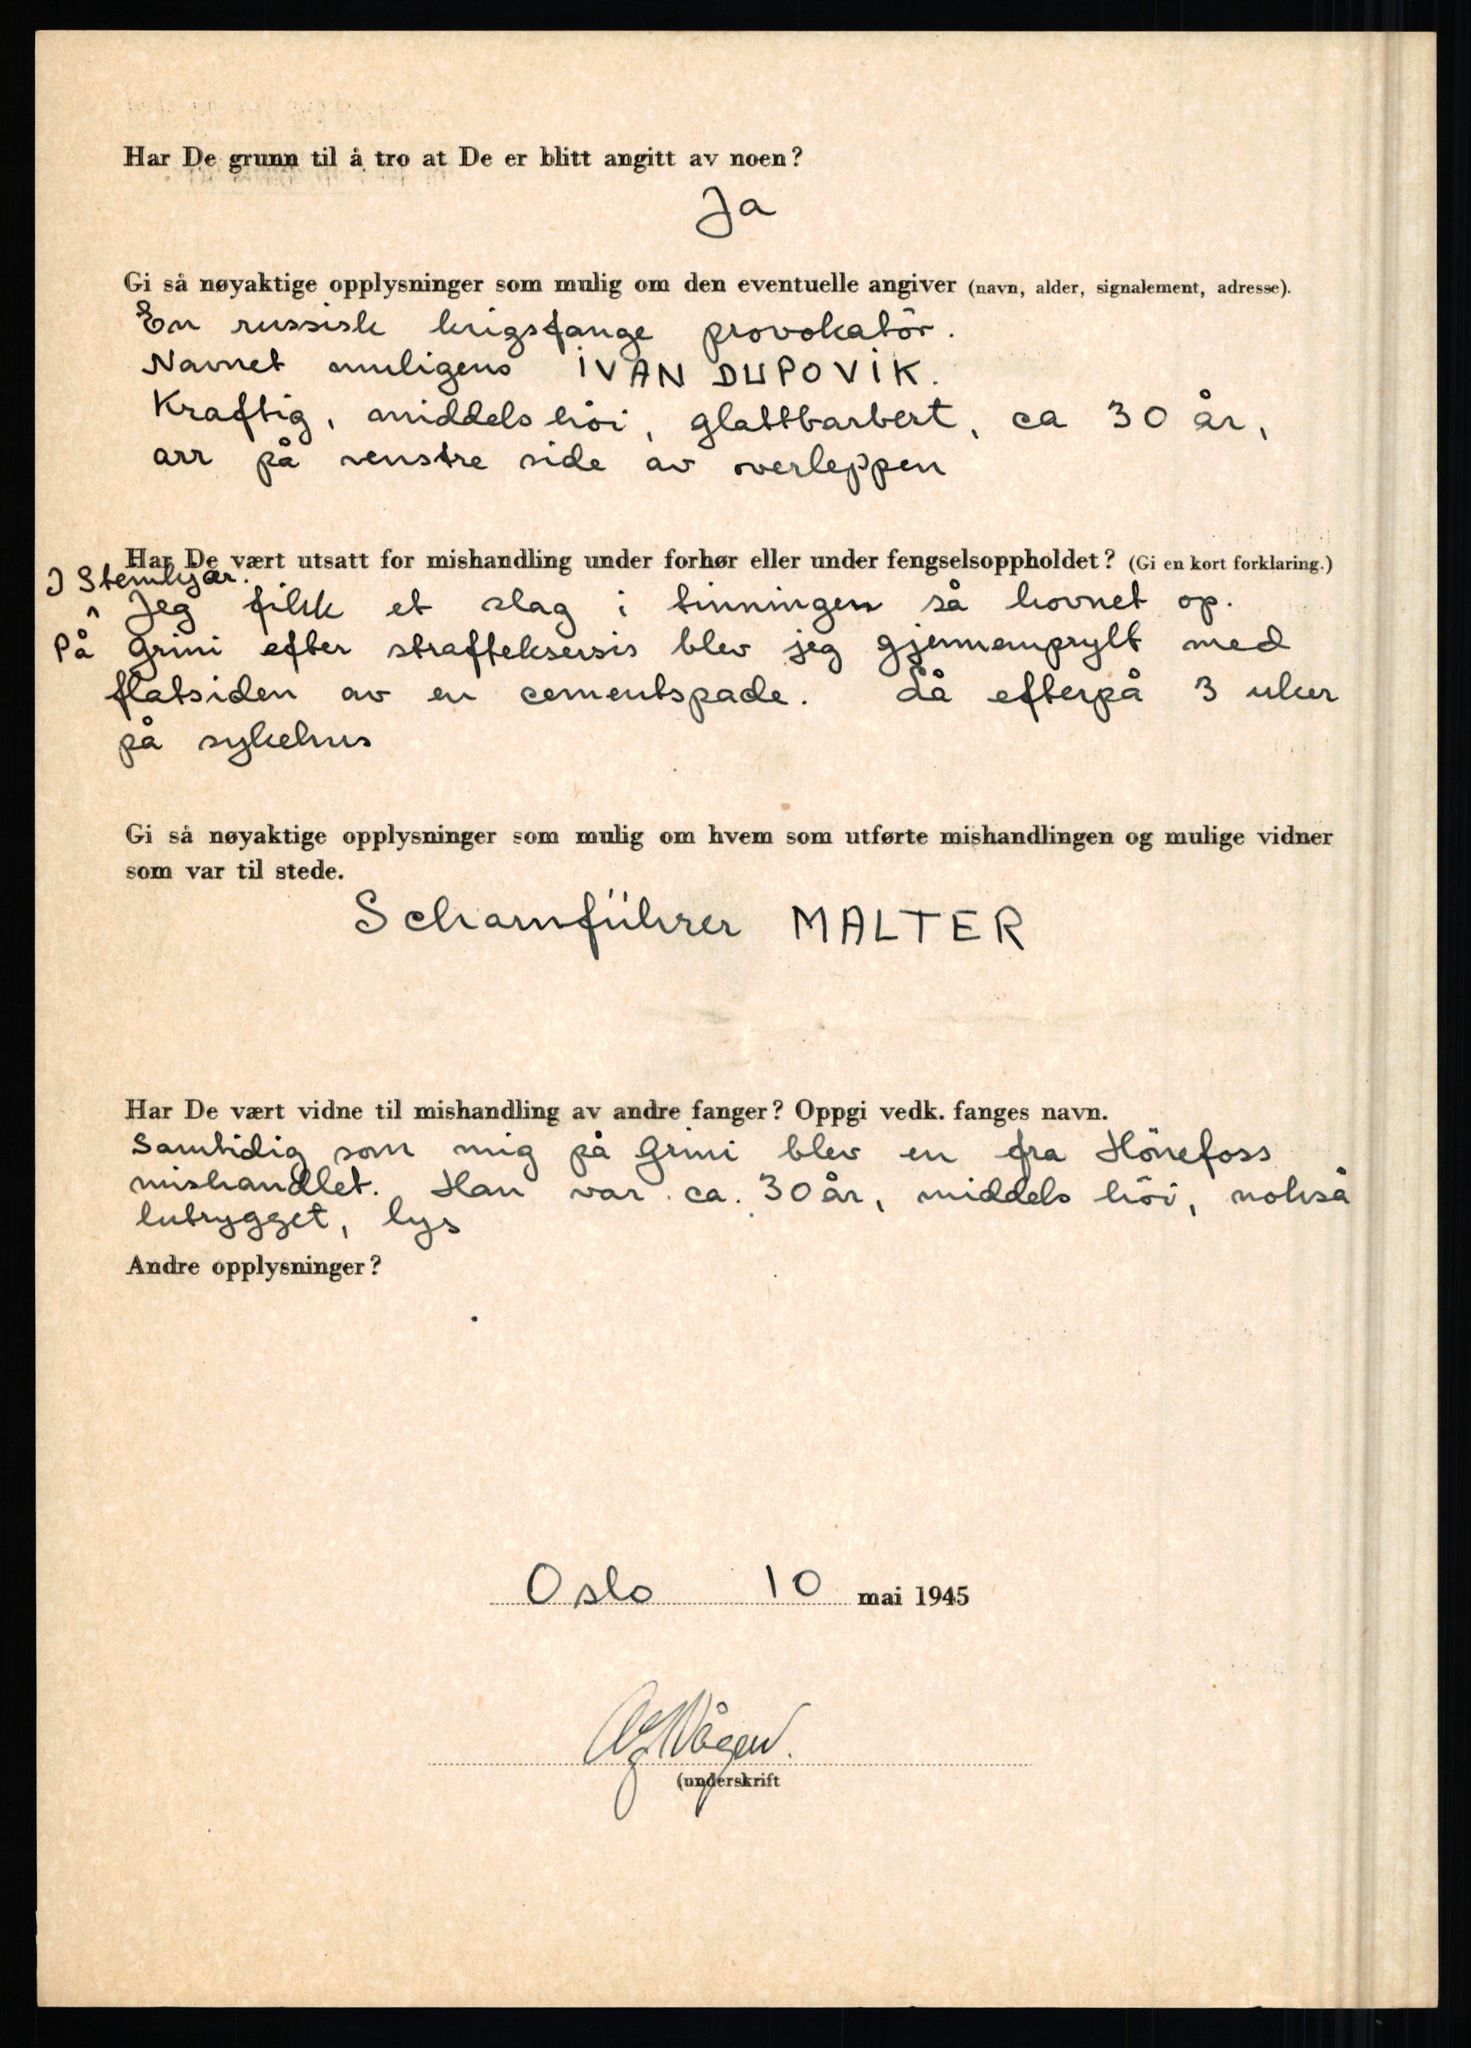 Har De grunn til å tro at De er blitt angitt av noen?
Ja
Gi så nøyaktige opplysninger som mulig om den eventuelle angiver (navn, alder, signalement, adresse).
En russisk krigsfange provokatör.
Navnet muligens IVAN DUPOVIK.
Kraftig, middels höi, glattbarbert, ca 30 år,
arr på venstre side av overleppen
Har De vært utsatt for mishandling under forhør eller under fengselsoppholdet? (Gi en kort forklaring.)
I Stenkjær.
Jeg fikk et slag i tinningen så hovnet op.
På Grini efter strafteksersis blev jeg gjennemprylt med
flatsiden av en cementspade. Lå efterpå 3 uker
på sykehus
Gi så nøyaktige opplysninger som mulig om hvem som utførte mishandlingen og mulige vidner
som var til stede.
Scharnführer MALTER
Har De vært vidne til mishandling av andre fanger? Oppgi vedk. fanges navn.
Samtidig som mig på Grini blev en fra Hönefoss
mishandlet. Han var ca. 30 år, middels höi, nokså
lutrygget, lys
Andre opplysninger?
Oslo 10 mai 1945
Vågen.
(underskrift